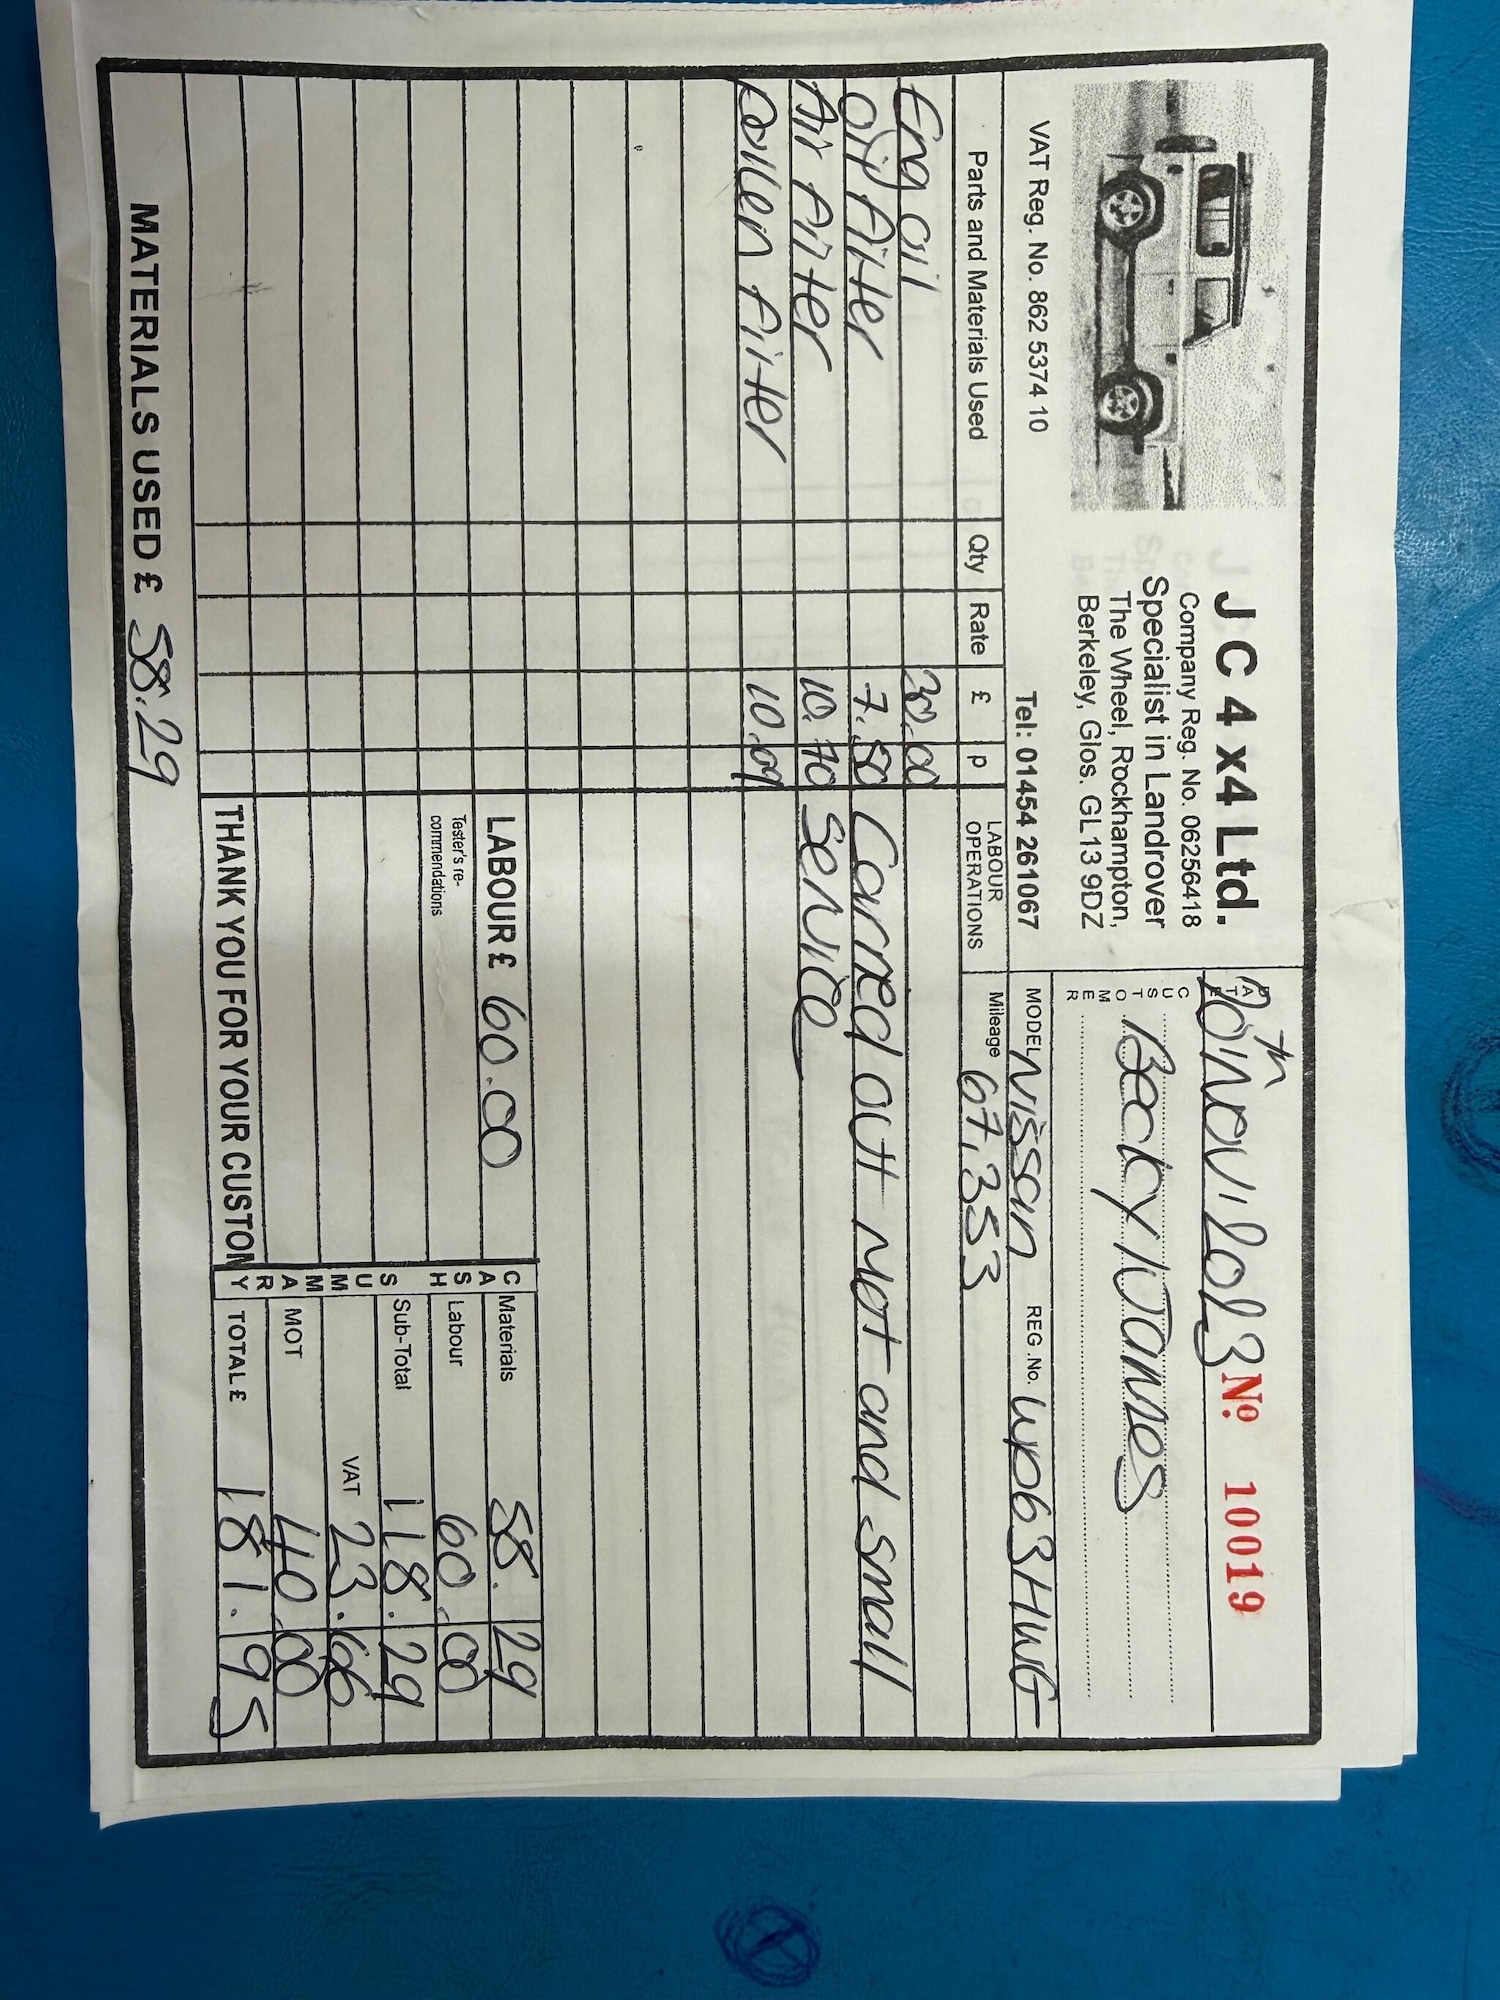 J C 4 x4 Ltd.
Company Reg. No. 06256418
Specialist in Landrover
The Wheel, Rockhampton,
Berkeley, Glos. GL13 9DZ
VAT Reg. No. 862 5374 10
Tel: 01454 261067
DATE 20th Nov 2023
Nº 10019
CUSTOMER Becky W James
MODEL Nissan REG .No. WP63HWG
Mileage 67,353
Parts and Materials Used Qty Rate £ p
Eng oil 30.00
Oil filter 7.50
Air filter 10.70
Pollen filter 10.09
MATERIALS USED £ 58.29
LABOUR OPERATIONS
Carried out Mot and small
service
LABOUR £ 60.00
Tester's re-
commendations
THANK YOU FOR YOUR CUSTOM
CASH SUMMARY
Materials 58.29
Labour 60.00
Sub-Total 118.29
VAT 23.66
MOT 40.00
TOTAL £ 181.95